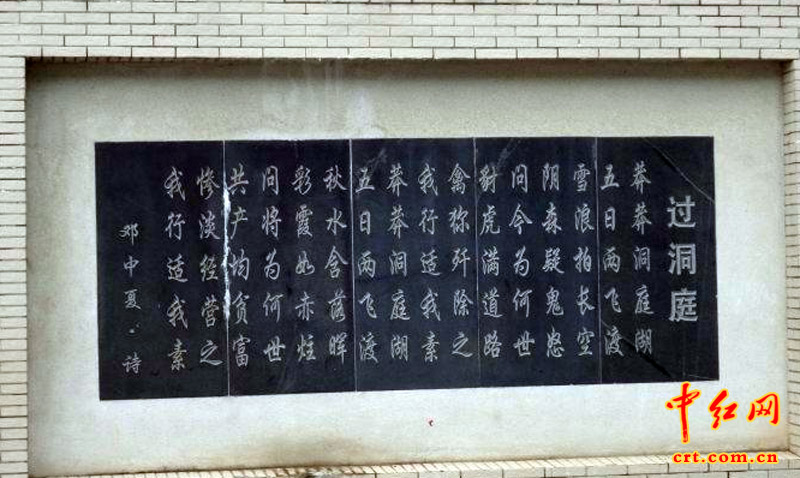 过洞庭
莽莽洞庭湖
五日两飞渡
雪浪拍长空
阴森疑鬼怒
问今为何世
豺虎满道路
禽狝歼除之
我行适我素
莽莽洞庭湖
五日两飞渡
秋水含落晖
彩霞如赤炷
问将为何世
共产均贫富
惨淡经营之
我行适我素
邓中夏·诗
中红网
crt.com.cn